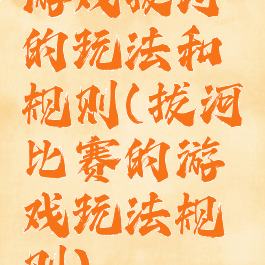 游戏拔河
的玩法和
规则(拔河
比赛的游
戏玩法规
则)